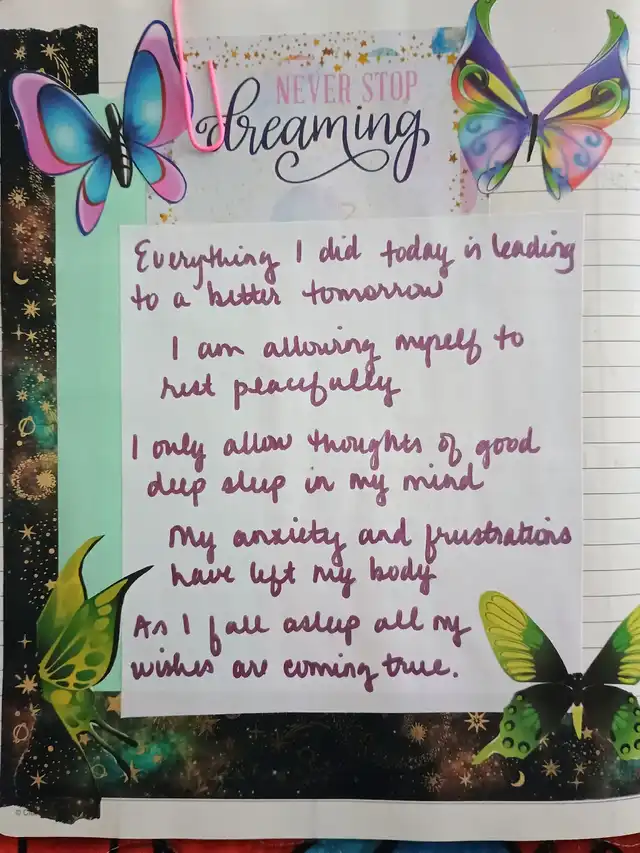 NEVER STOP
dreaming
Everything I did today is leading
to a better tomorrow
I am allowing myself to
rest peacefully
I only allow thoughts of good
deep sleep in my mind
My anxiety and frustrations
have left my body
As I fall asleep all my
wishes are coming true.